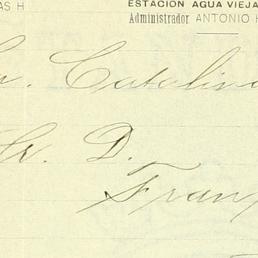 AS H
ESTACIÓN AGUA VIEJA
Administrador ANTONIO H
Catalina
Sr. D.
Fran